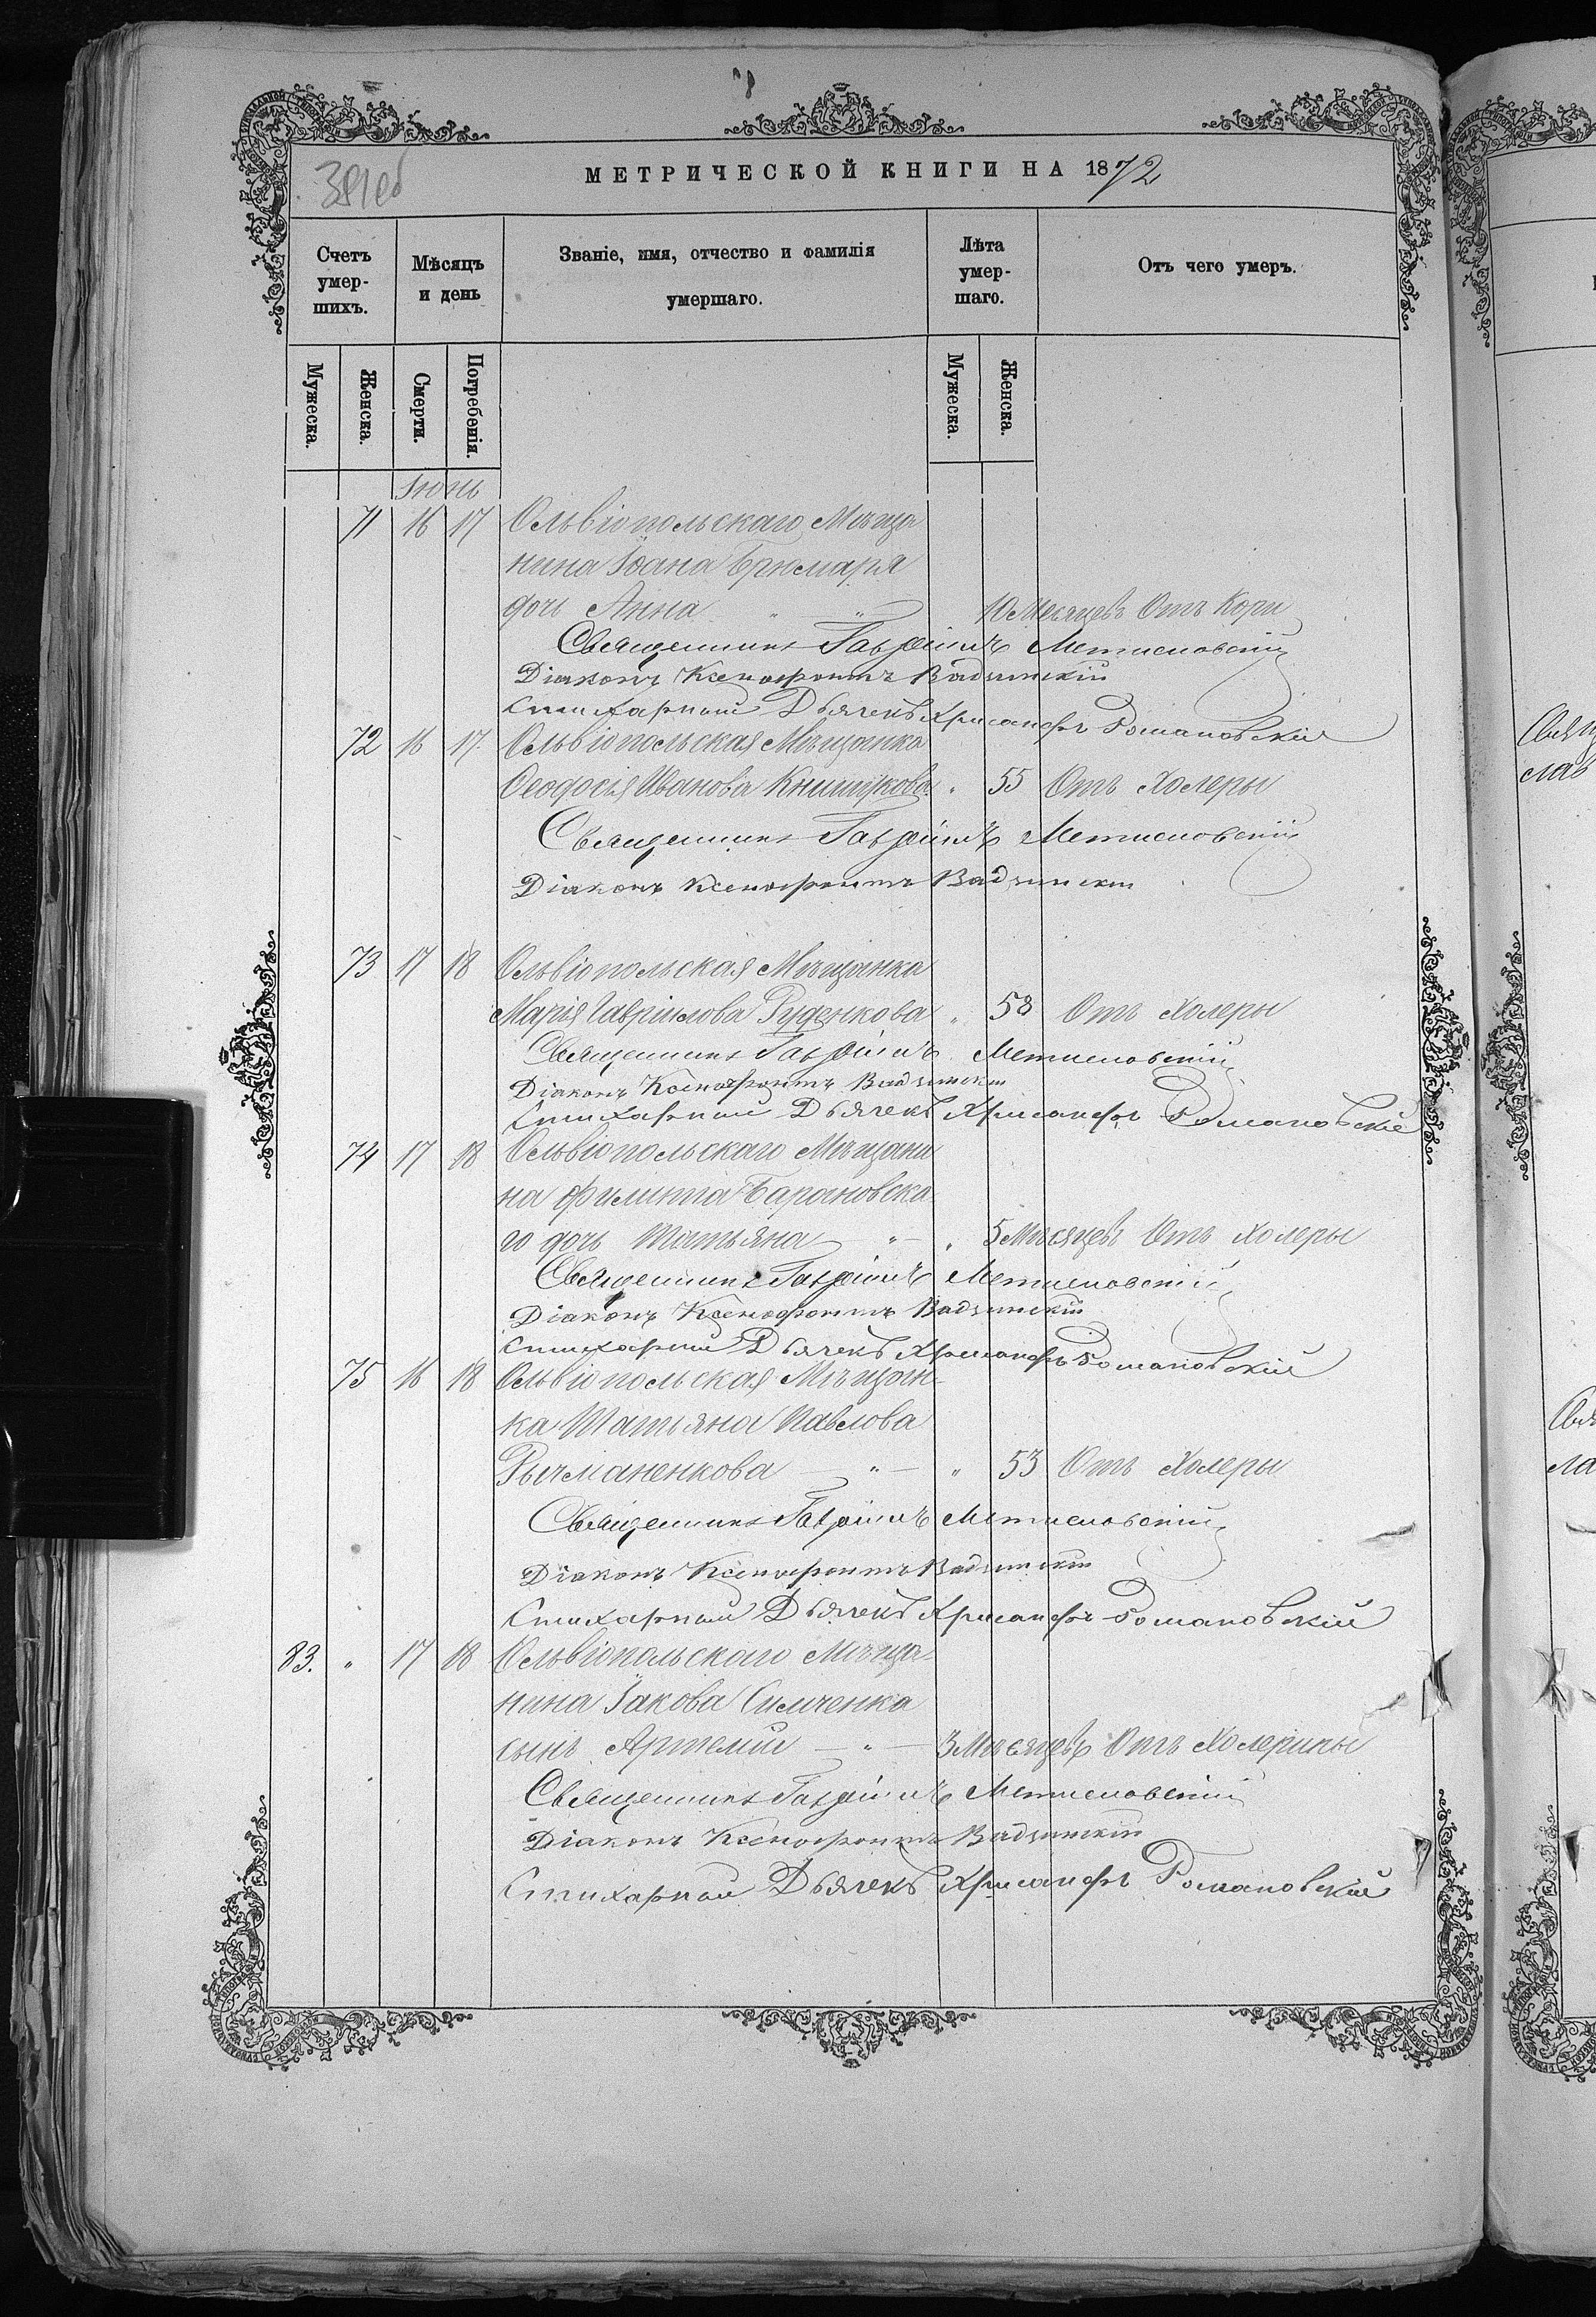 391об
МЕТРИЧЕСКОЙ КНИГИ НА 1872
Счетъ умер-шихъ. Мѣсяцъ и день Званіе, имя, отчество и фамилія умершаго. Лѣта умер-шаго. Отъ чего умеръ.
Мужеска. Женска. Смерти. Погребенія. Мужеска. Женска.
Іюнь
71 16 17 Ольвіопольскаго Мѣща
нина Іоана
дочь Анна " " 10 Месяцевъ Отъ Кори
Священникъ Гавріилъ
Діаконъ Ксенофонтъ
Стихарный Дьячекъ Хрисанфъ Романовскій
72 16 17. Ольвіопольская Мѣщанка
Ѳеодосія Иванова Книшукова " 55 Отъ Холеры
Священникъ Гавріилъ
Діаконъ Ксенофонтъ
73 17 18 Ольвіопольская Мѣщанка
Марія Гавріилова Руденкова " 58 Отъ Холеры
Священникъ Гавріилъ
Діаконъ Ксенофонтъ
Стихарный Дьячекъ Хрисанфъ Романовскій
74 17 18 Ольвіопольскаго Мѣщани
на Филиппа Барановска
го дочь Татьяна " — " 5 Мѣсяцевъ Отъ Холеры
Священникъ Гавріилъ
Діаконъ Ксенофонтъ
Стихарный Дьячекъ Хрисанфъ Романовскій
75 16 18 Ольвіопольская Мѣщан-
ка Татьяна Павлова
Рычманенкова — " — " 53 Отъ Холеры
Священникъ Гавріилъ
Діаконъ Ксенофонтъ
Стихарный Дьячекъ Хрисанфъ Романовскій
83. " 17 18 Ольвіопольскаго Мѣща-
нина Іакова Симченка
сынъ Артемій — " — 3 Мѣсяцевъ Отъ Холерины
Священникъ Гавріилъ
Діаконъ Ксенофонтъ
Стихарный Дьячекъ Хрисанфъ Романовскій